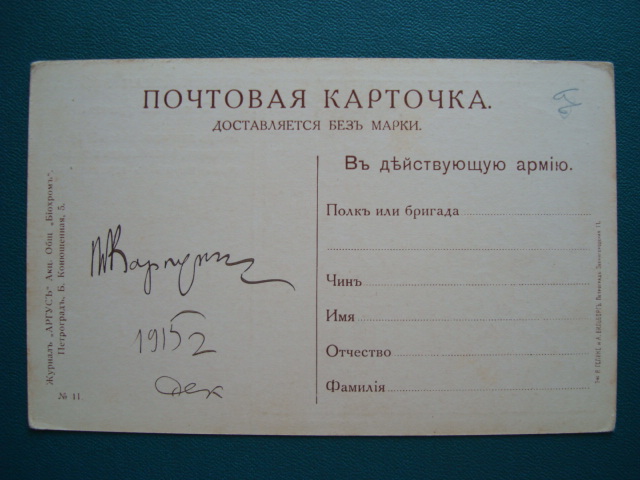 ПОЧТОВАЯ КАРТОЧКА.
ДОСТАВЛЯЕТСЯ БЕЗЪ МАРКИ.
Въ дѣйствующую армію.
Полкъ или бригада
Чинъ
Имя
Отчество
Фамилія
1915 г
Дек
Журналъ „АРГУСЪ" Акц. Общ. „Біохромъ".
Петроградъ, Б. Конюшенная, 5.
№ 11.